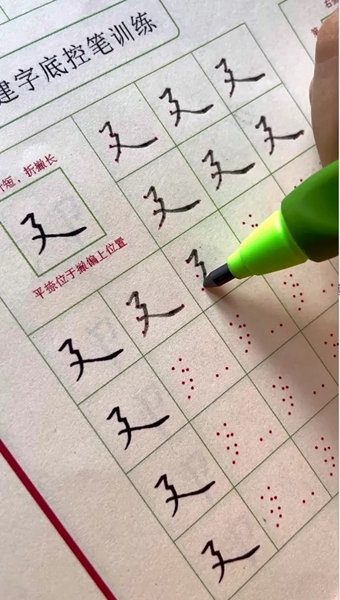 建字底控笔训练
短，折撇长
廴
平捺位于撇偏上位置
廴 廴 廴
廴 廴 廴
廴 廴
廴
廴
廴